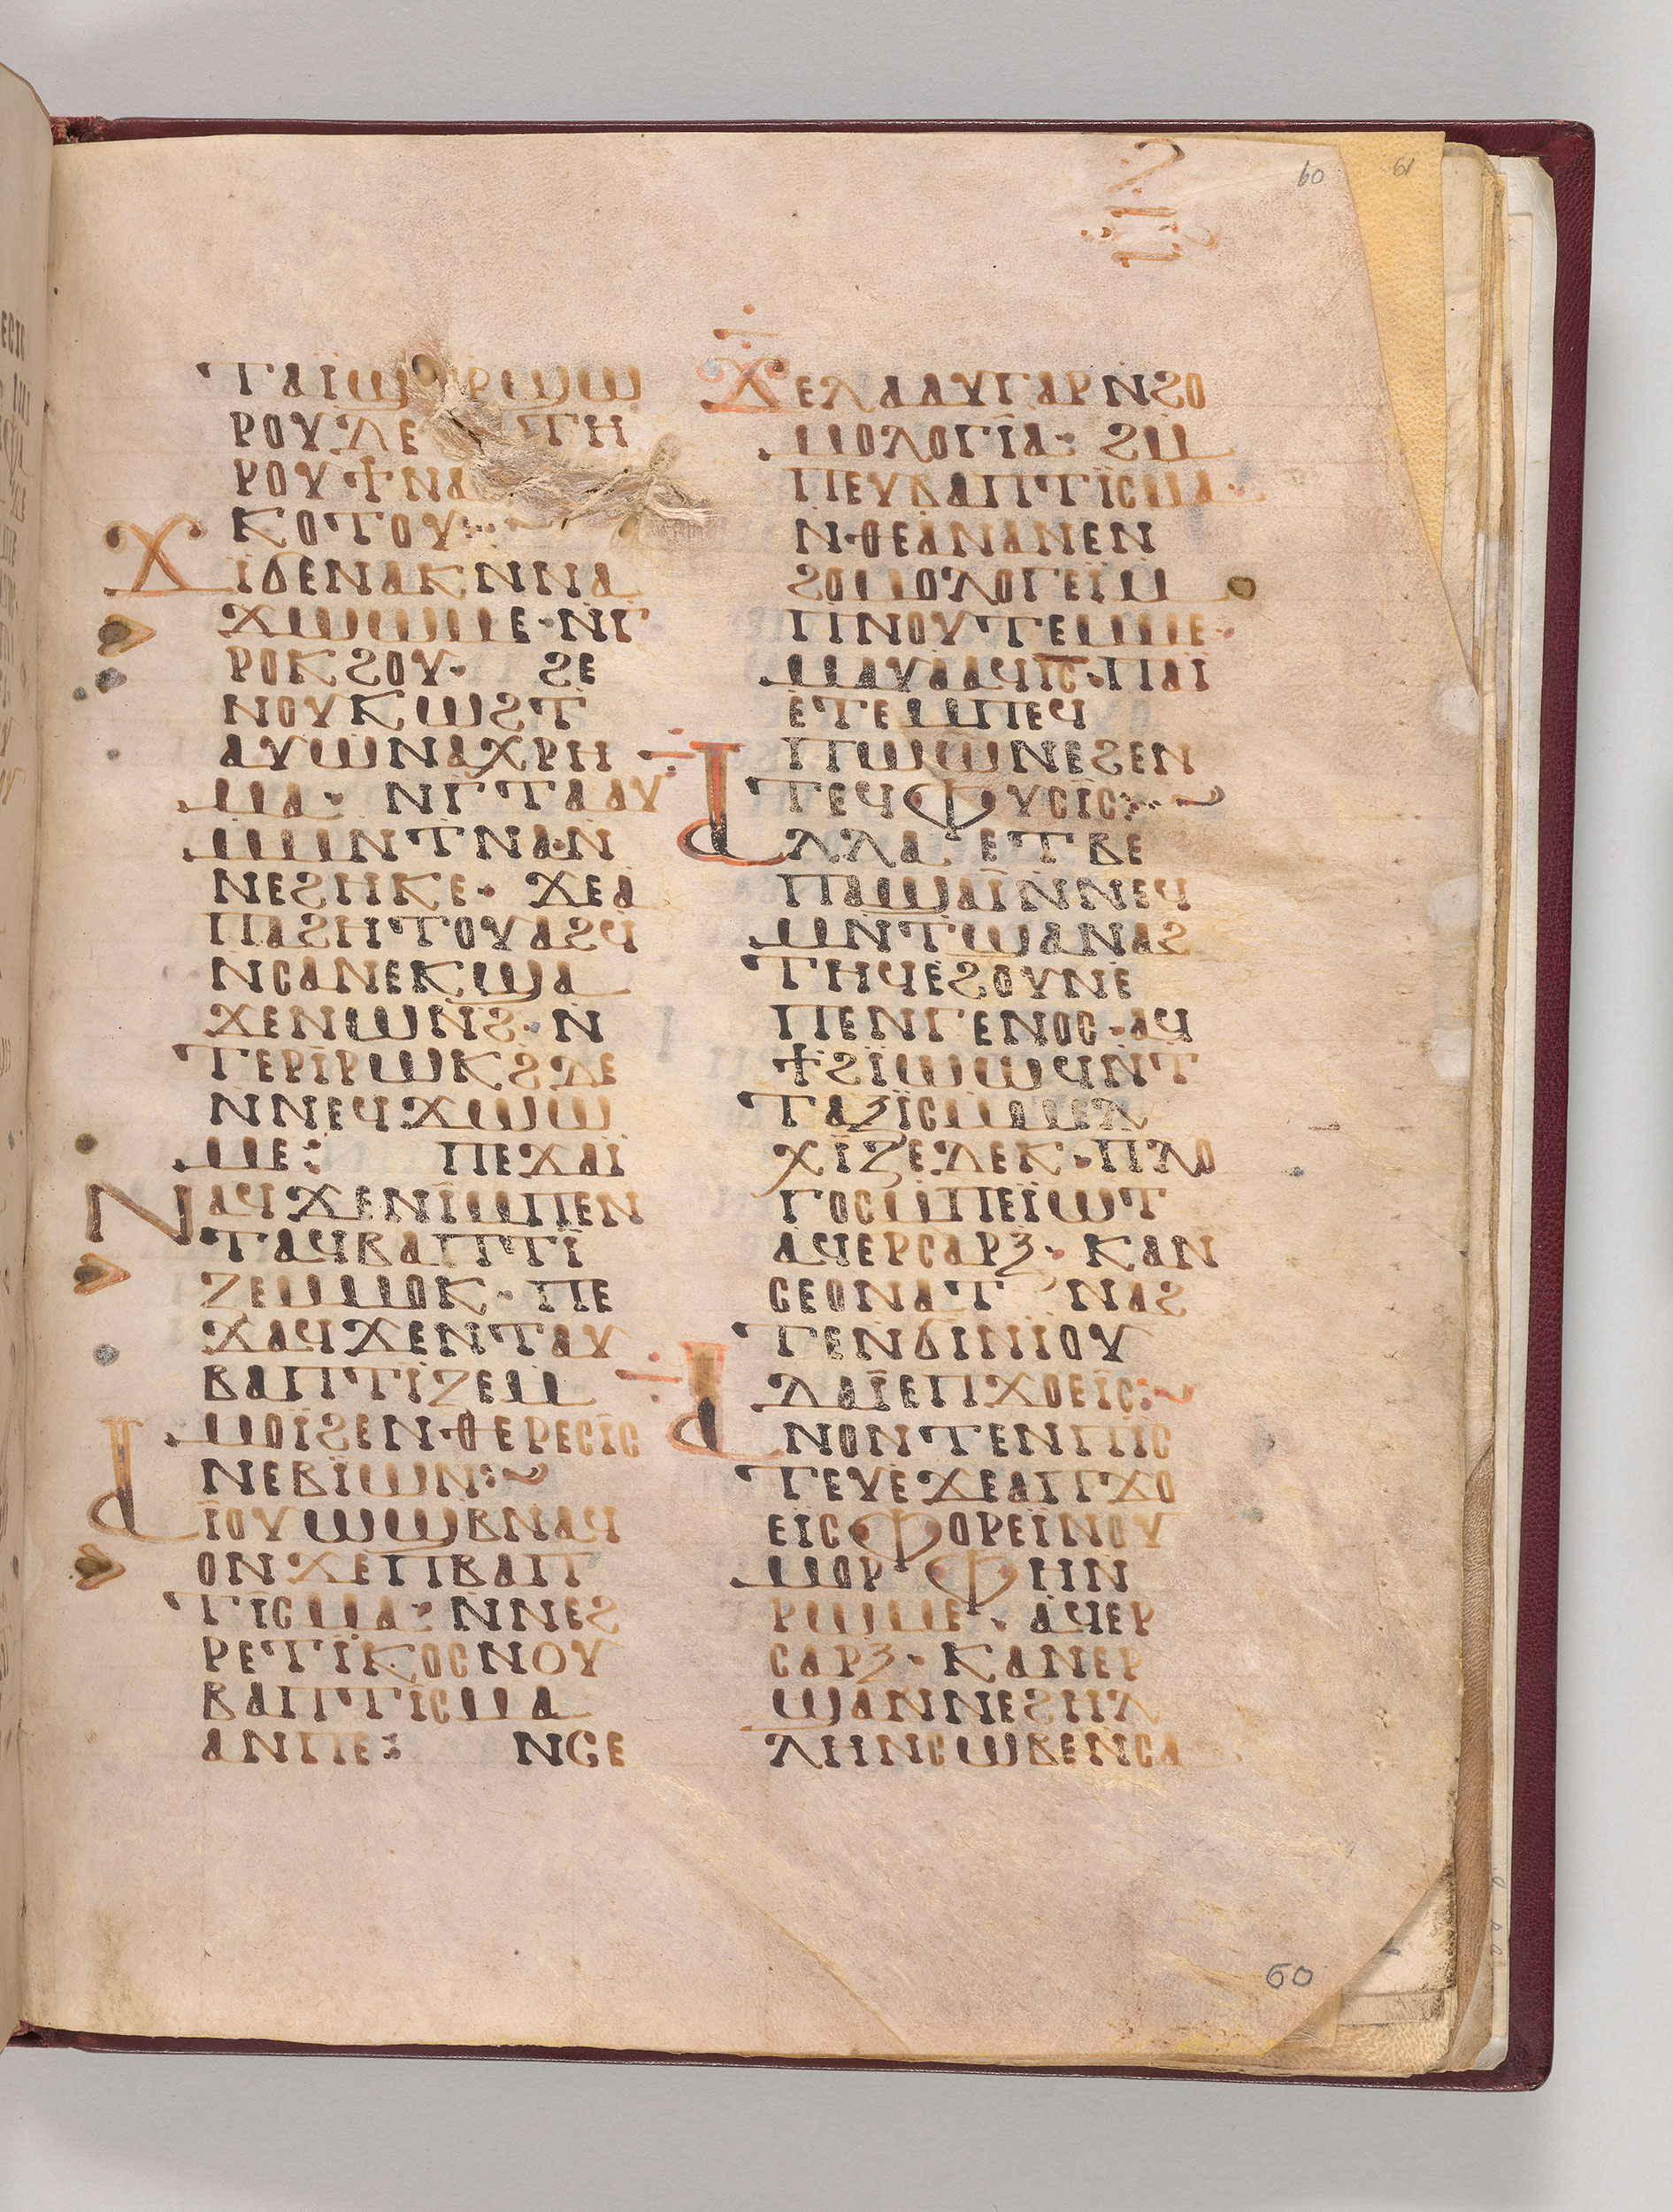 ⲧⲁⲓ̈ϣ ⲣⲉϣⲱ
ⲣⲟⲩⲇⲉ ⲧⲏ
ⲣⲟⲩϯⲛⲁ
ⲕⲟⲧⲟⲩ·:·
ϫⲓ̈ϭⲉⲛⲁⲕⲛⲛⲁ
ϫⲱⲱⲙⲉ·ⲛⲅ
ⲣⲟⲕϩⲟⲩ· ϩⲉ
ⲛⲟⲩⲕⲱϩⲧ
ⲁⲩⲱⲛⲁⲭⲣⲏ
ⲙⲁ· ⲛⲅⲧⲁⲁⲩ
ⲙⲙⲛⲧⲛⲁ·ⲛ
ⲛⲉϩⲏⲕⲉ· ϫⲉⲁ
ⲡⲁϩⲏⲧⲟⲩⲁϩϥ
ⲛⲥⲁⲛⲉⲕϣⲁ
ϫⲉⲛⲱⲛϩ·ⲛ
ⲧⲉⲣⲓⲣⲱⲕϩⲇⲉ
ⲛⲛⲉϥϫⲱⲱ
ⲙⲉ: ⲡⲉϫⲁⲓ̈
ⲛⲁϥϫⲉⲛⲓⲙⲡⲉⲛ
ⲧⲁϥⲃⲁⲡⲧⲓ̈
ⲍⲉⲙⲙⲟⲕ·ⲡⲉ
ϫⲁϥϫⲉⲛⲧⲁⲩ
ⲃⲁⲡⲧⲓⲍⲉⲙ
ⲙⲟⲓ̈ϩⲉⲛ·ⲑⲉⲣⲉⲥⲓ̈ⲥ
ⲛⲉⲃⲓ̈ⲱⲛ:~
ⲁⲓ̈ⲟⲩⲱϣⲃⲛⲁϥ
ⲟⲛϫⲉⲡⲃⲁⲡ
ⲧⲓ̈ⲥⲙⲁ:ⲛⲛⲉϩ
ⲣⲉⲧⲓ̈ⲕⲟⲥⲛⲟⲩ
ⲃⲁⲡⲧⲓ̈ⲥⲙⲁ
ⲁⲛⲡⲉ: ⲛⲥⲉ
ϫⲉⲗⲁⲁⲩⲅⲁⲣⲛϩⲟ
ⲙⲟⲗⲟⲅⲓ̈ⲁ: ϩⲙ
ⲡⲉⲩⲃⲁⲡⲧⲓ̈ⲥⲙⲁ·
ⲛ·ⲑⲉⲁⲛⲁⲛⲉⲛ
ϩⲟⲙⲟⲗⲟⲅⲉⲓ̈ⲙ
ⲡⲛⲟⲩⲧⲉⲙⲙⲉ·
ⲙⲁⲩⲁⲁϥⲓ̅ⲥ̅·ⲡⲁⲓ̈
ⲉⲧⲉⲙⲡⲉϥ
ⲡⲱⲱⲛⲉϩⲉⲛ
ⲧⲉϥⲫⲩⲥⲓⲥ:·~
ⲁⲗⲗⲁ ⲉⲧⲃⲉ
ⲡⲁϣⲁⲓ̈ⲛⲛⲉϥ
ⲙⲛⲧϣⲁⲛⲁϩ
ⲧⲏϥⲉϩⲟⲩⲛⲉ
ⲡⲉⲛⲅⲉⲛⲟⲥ·ⲁϥ
ϯϩⲓ̈ⲱⲱϥⲛⲧ
ⲧⲁⲝⲓ̈ⲥⲙⲙⲉⲗ
ⲭⲓ̈ⲍⲉⲇⲉⲕ·ⲡⲗⲟ
ⲅⲟⲥⲙⲡⲉⲓ̈ⲱⲧ
ⲁϥⲉⲣⲥⲁⲣⲝ·ⲕⲁⲛ
ⲥⲉⲟⲛⲁⲧ ⲛⲁϩ
ⲧⲉⲛϭⲓⲛⲓ̈ⲟⲩ
ⲇⲁⲓ̈ⲉⲡϫⲟⲉⲓⲥ:~
ⲁⲛⲟⲛⲧⲉⲛⲡⲓ̈ⲥ
ⲧⲉⲩⲉϫⲉⲁⲡϫⲟ
ⲉⲓⲥⲫⲟⲣⲉⲓ̈ⲛⲟⲩ
ⲙⲟⲣⲫⲏⲛ
ⲣⲱⲙⲉ·ⲁϥⲉⲣ
ⲥⲁⲣⲝ·ⲕⲁⲛⲉⲣ
ϣⲁⲛⲛⲉϩⲗⲗ
ⲗⲏⲛⲥⲱⲃⲉⲛⲥⲁ
60
61
60